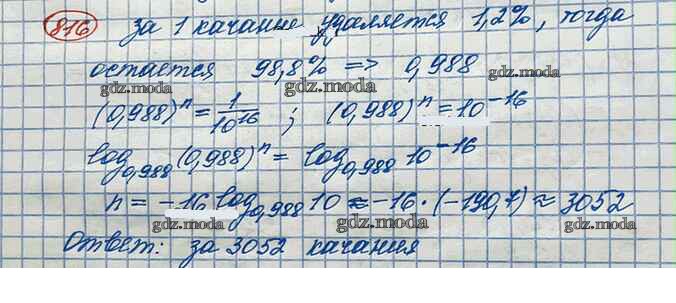 816 за 1 качание удаляется 1,2%, тогда
остается 98,8% => 0,988
gdz.moda gdz.moda gdz.moda
(0,988)^n = 1/10^16 ; (0,988)^n = 10^-16
log_0,988 (0,988)^n = log_0,988 10^-16
gdz.moda gdz.moda
n = -16 log_0,988 10 ≈ -16 · (-190,7) ≈ 3052
gdz.moda gdz.moda gdz.moda
Ответ: за 3052 качания
gdz.moda gdz.moda